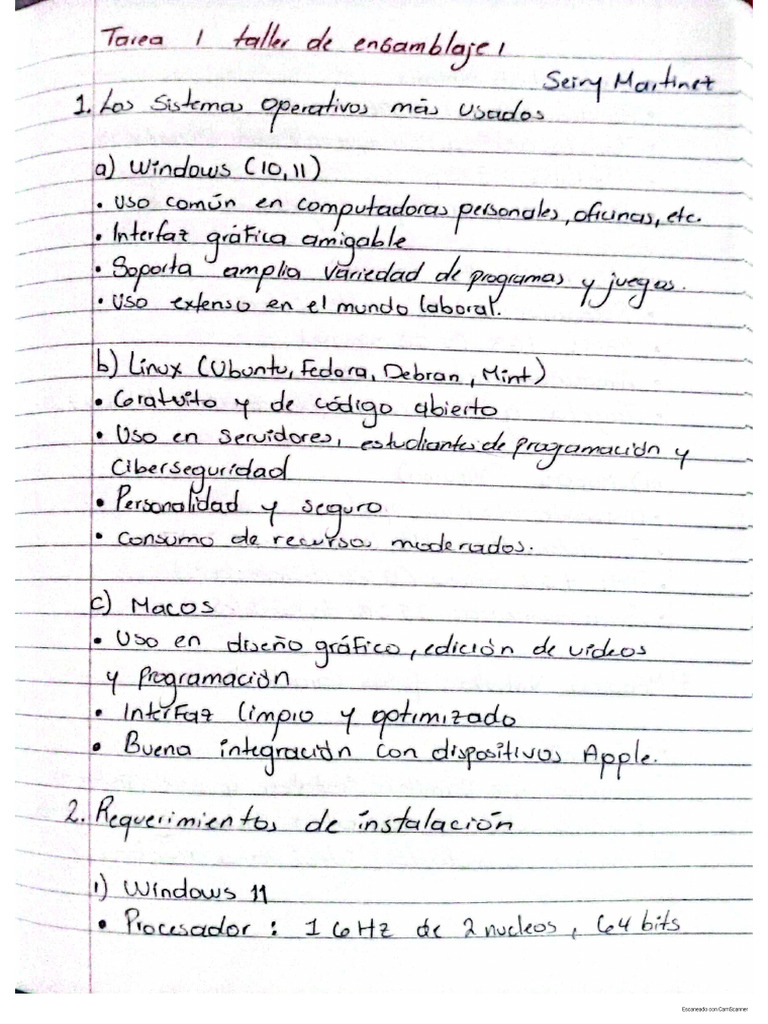 Tarea 1 taller de ensamblaje 1
Seiry Martinez
1. Los Sistemas Operativos más usados
a) Windows (10, 11)
• Uso común en computadoras personales, oficinas, etc.
• Interfaz gráfica amigable
• Soporta amplia variedad de programas y juegos.
• Uso extenso en el mundo laboral.
b) Linux (Ubuntu, Fedora, Debran, Mint)
• Gratuito y de código abierto
• Uso en servidores, estudiantes de programación y
Ciberseguridad
• Personalidad y seguro
• Consumo de recursos moderados.
c) Macos
• Uso en diseño gráfico, edición de videos
y programación
• Interfaz limpio y optimizado
• Buena integración con dispositivos Apple.
2. Requerimientos de instalación
1) Windows 11
• Procesador : 1 GHz de 2 nucleos, 64 bits
Escaneado con CamScanner